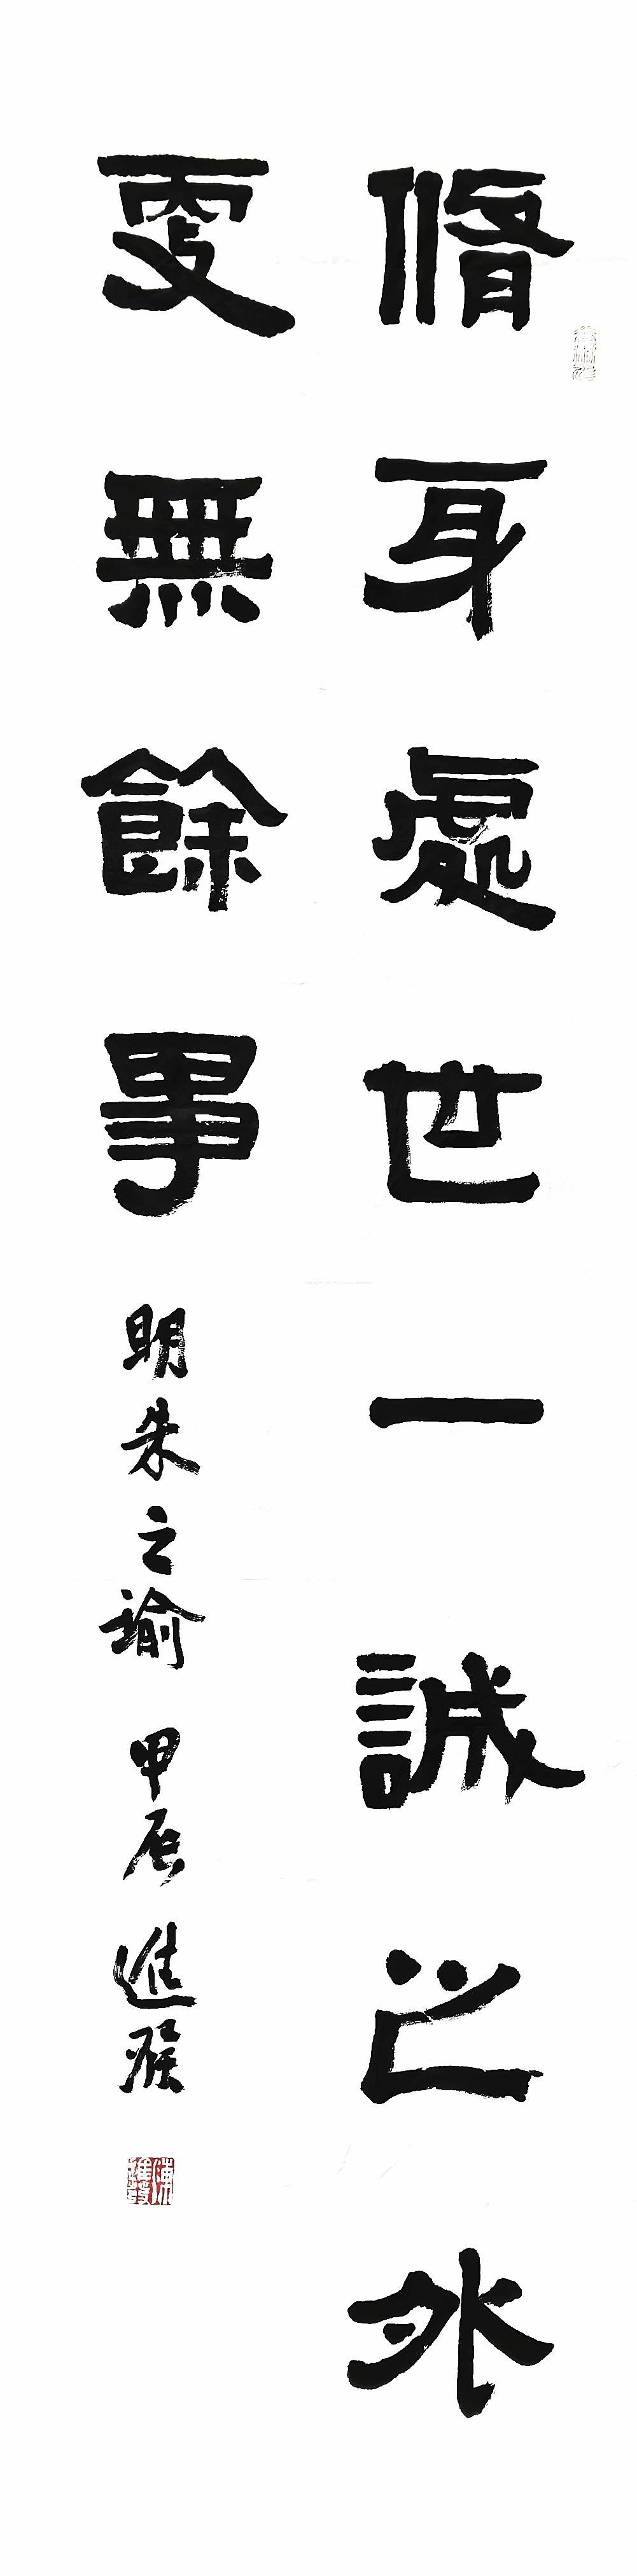 脩身處世一誠之外
更無餘事 明朱之瑜 甲辰 進發
陳進發